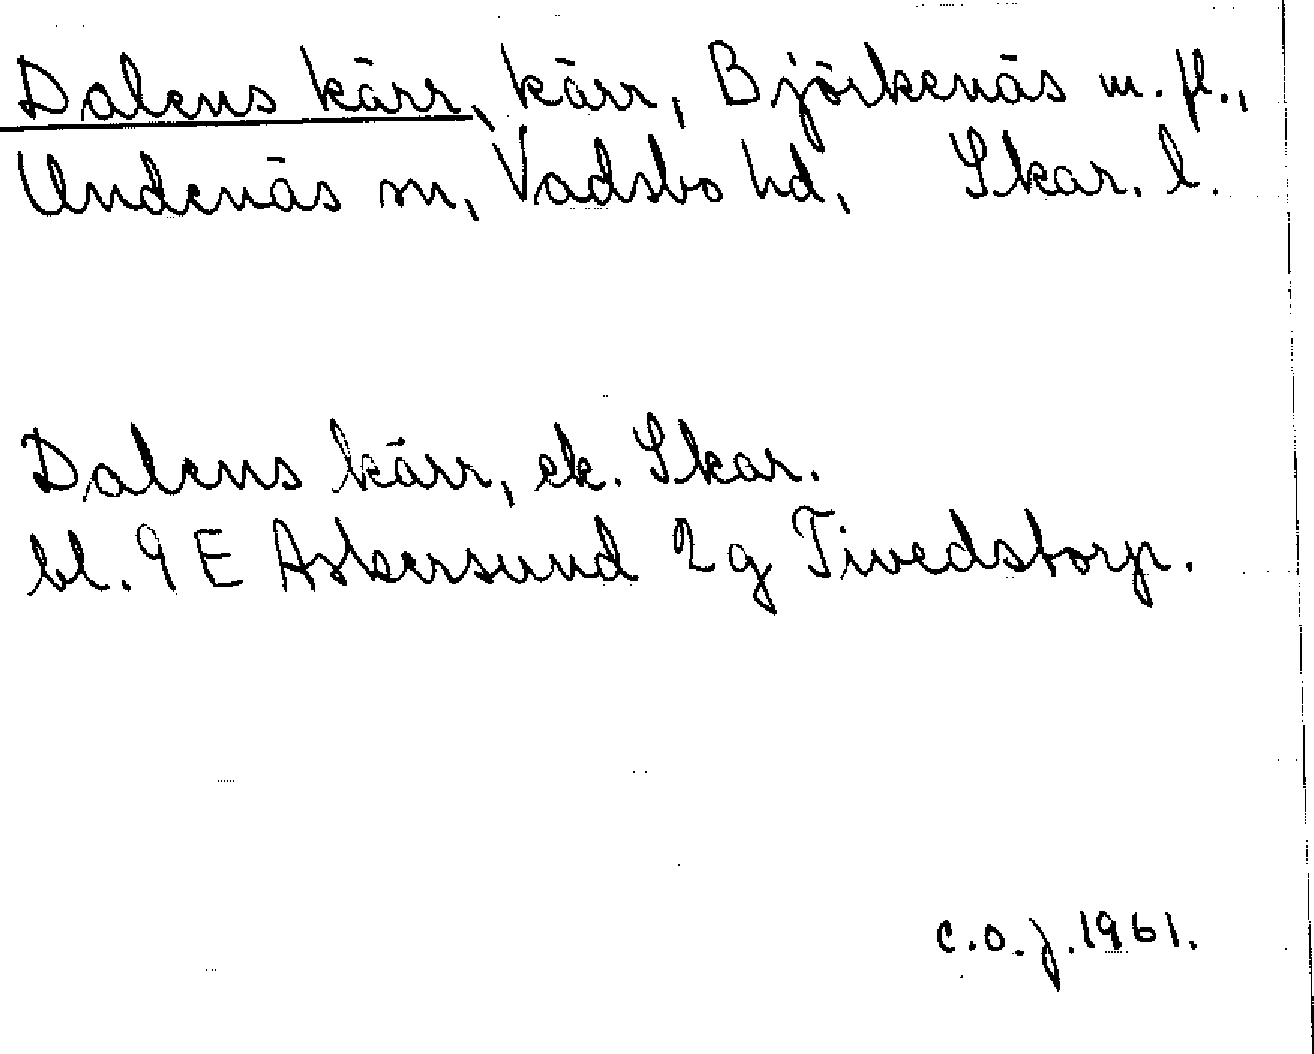 Dalens kärr, kärr, Björkenäs m. fl.,
Undenäs sn, Vadsbo hd, Skar. l.
Dalens kärr, ek. Skar.
bl. 9 E Askersund 2 g Tivedstorp.
C.O.J. 1961.